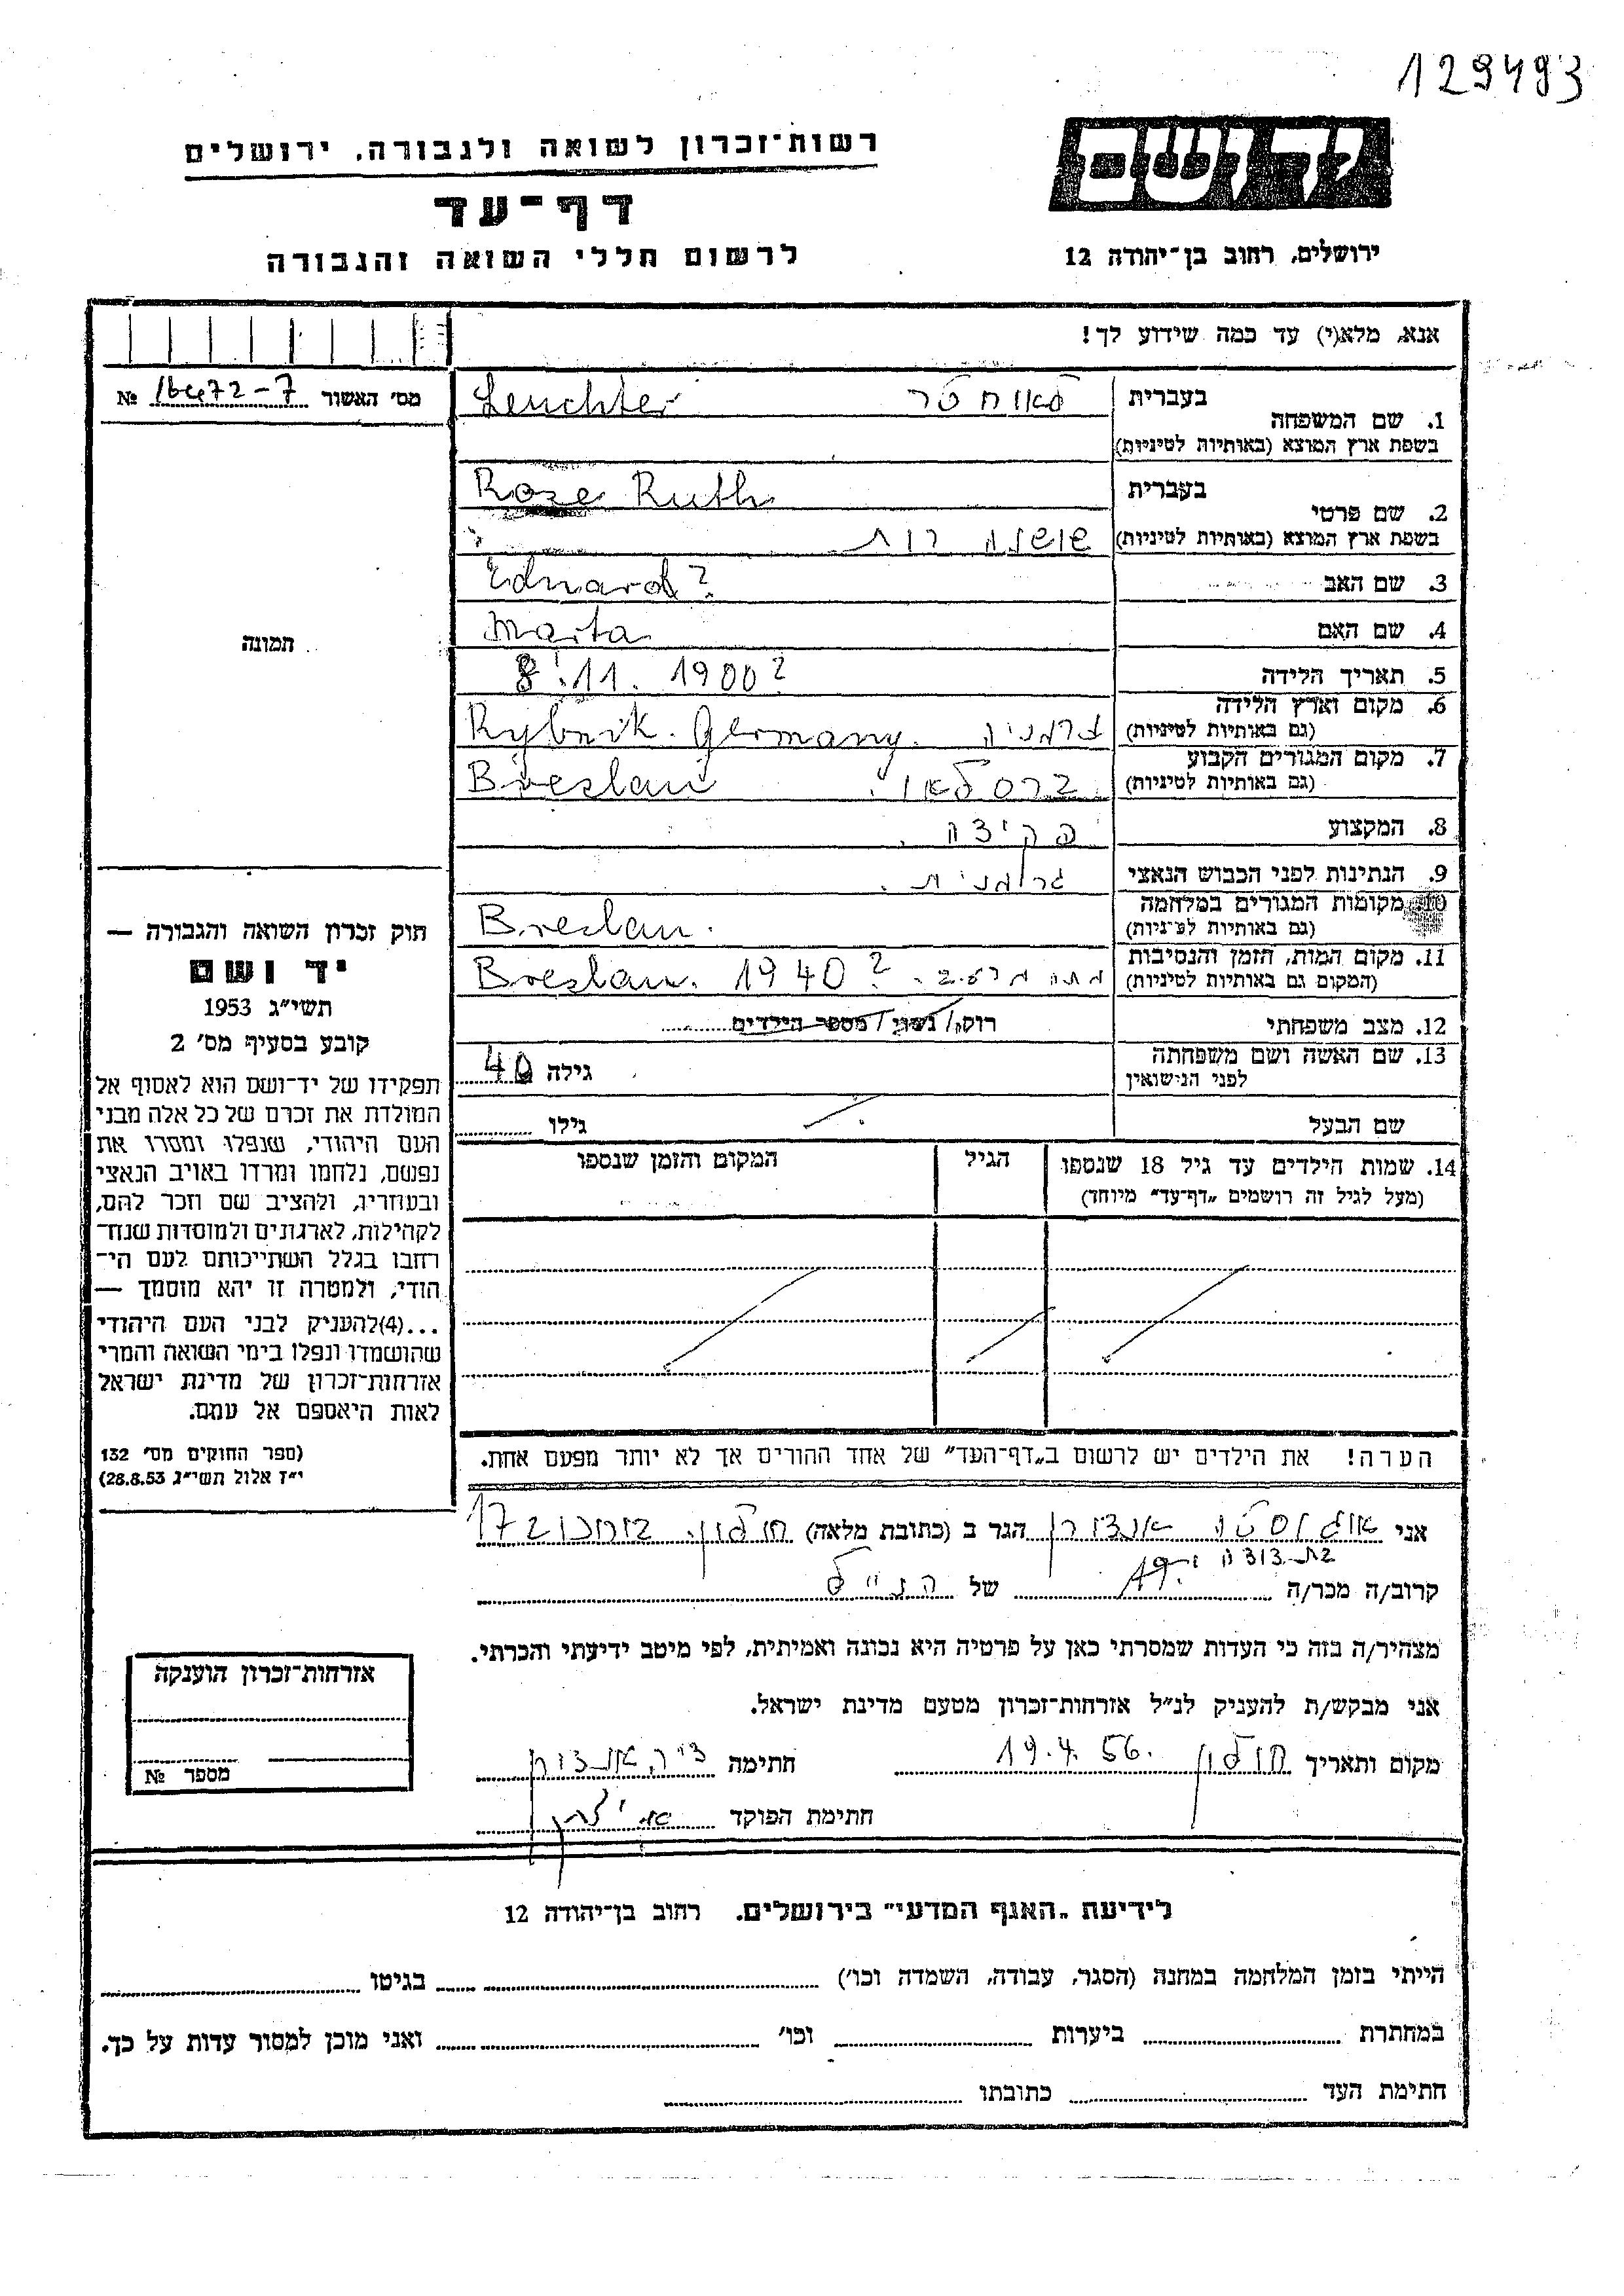 129493
יד ושם
רשות־זכרון לשואה ולגבורה, ירושלים
דף־עד
לרשום חללי השואה והגבורה
ירושלים, רחוב בן־יהודה 12
אנא, מלא(י) עד כמה שידוע לך!
מס' האשור №
1. שם המשפחה
בעברית
לאוחטר Leuchter
בשפת ארץ המוצא (באותיות לטיניות)
2. שם פרטי
בעברית
Roze Ruth
בשפת ארץ המוצא (באותיות לטיניות)
שושנה רות
3. שם האב
Eduard?
4. שם האם
Marta
5. תאריך הלידה
8.11.1900?
6. מקום וארץ הלידה
(גם באותיות לטיניות)
Rybnik. Germany. גרמניה
7. מקום המגורים הקבוע
(גם באותיות לטיניות)
Breslau ברסלאו.
8. המקצוע
פקידה.
9. הנתינות לפני הכבוש הנאצי
גרמנית.
10. מקומות המגורים במלחמה
(גם באותיות לטיניות)
Breslau.
11. מקום המות, הזמן והנסיבות
(המקום גם באותיות לטיניות)
Breslau. 1940? מתה
12. מצב משפחתי
רוק/ה/ נשוי/ מספר הילדים
13. שם האשה ושם משפחתה
לפני הנישואין
גילה 40
שם הבעל
גילו
14. שמות הילדים עד גיל 18 שנספו
(מעל לגיל זה רושמים „דף־עד" מיוחד)
הגיל
המקום והזמן שנספו
הערה! את הילדים יש לרשום ב„דף־העד" של אחד ההורים אך לא יותר מפעם אחת.
תמונה
חוק זכרון השואה והגבורה —
יד ושם
תשי"ג 1953
קובע בסעיף מס' 2
תפקידו של יד־ושם הוא לאסוף אל
המולדת את זכרם של כל אלה מבני
העם היהודי, שנפלו ומסרו את
נפשם, נלחמו ומרדו באויב הנאצי
ובעוזריו, ולהציב שם וזכר להם,
לקהילות, לארגונים ולמוסדות שנח־
רחבו בגלל השתייכותם לעם הי־
הודי, ולמטרה זו יהא מוסמך —
...(4)להעניק לבני העם היהודי
שהושמדו ונפלו בימי השואה והמרי
אזרחות־זכרון של מדינת ישראל
לאות היאספם אל עמם.
(ספר החוקים מס' 132
י"ז אלול תשי"ג 28.8.53)
אני הגר ב (כתובת מלאה) חולון. 17
קרוב/ה מכר/ה בת דודה של הנ"ל
מצהיר/ה בזה כי העדות שמסרתי כאן על פרטיה היא נכונה ואמיתית, לפי מיטב ידיעתי והכרתי.
אני מבקש/ת להעניק לנ"ל אזרחות־זכרון מטעם מדינת ישראל.
מקום ותאריך חולון 19.4.56. חתימה
חתימת הפוקד
אזרחות־זכרון הוענקה
מספר №
לידיעת „האגף המדעי" בירושלים, רחוב בן־יהודה 12
הייתי בזמן המלחמה במחנה (הסגר, עבודה, השמדה וכו') בגיטו
במחתרת ביערות וכו' ואני מוכן למסור עדות על כך.
חתימת העד כתובתו